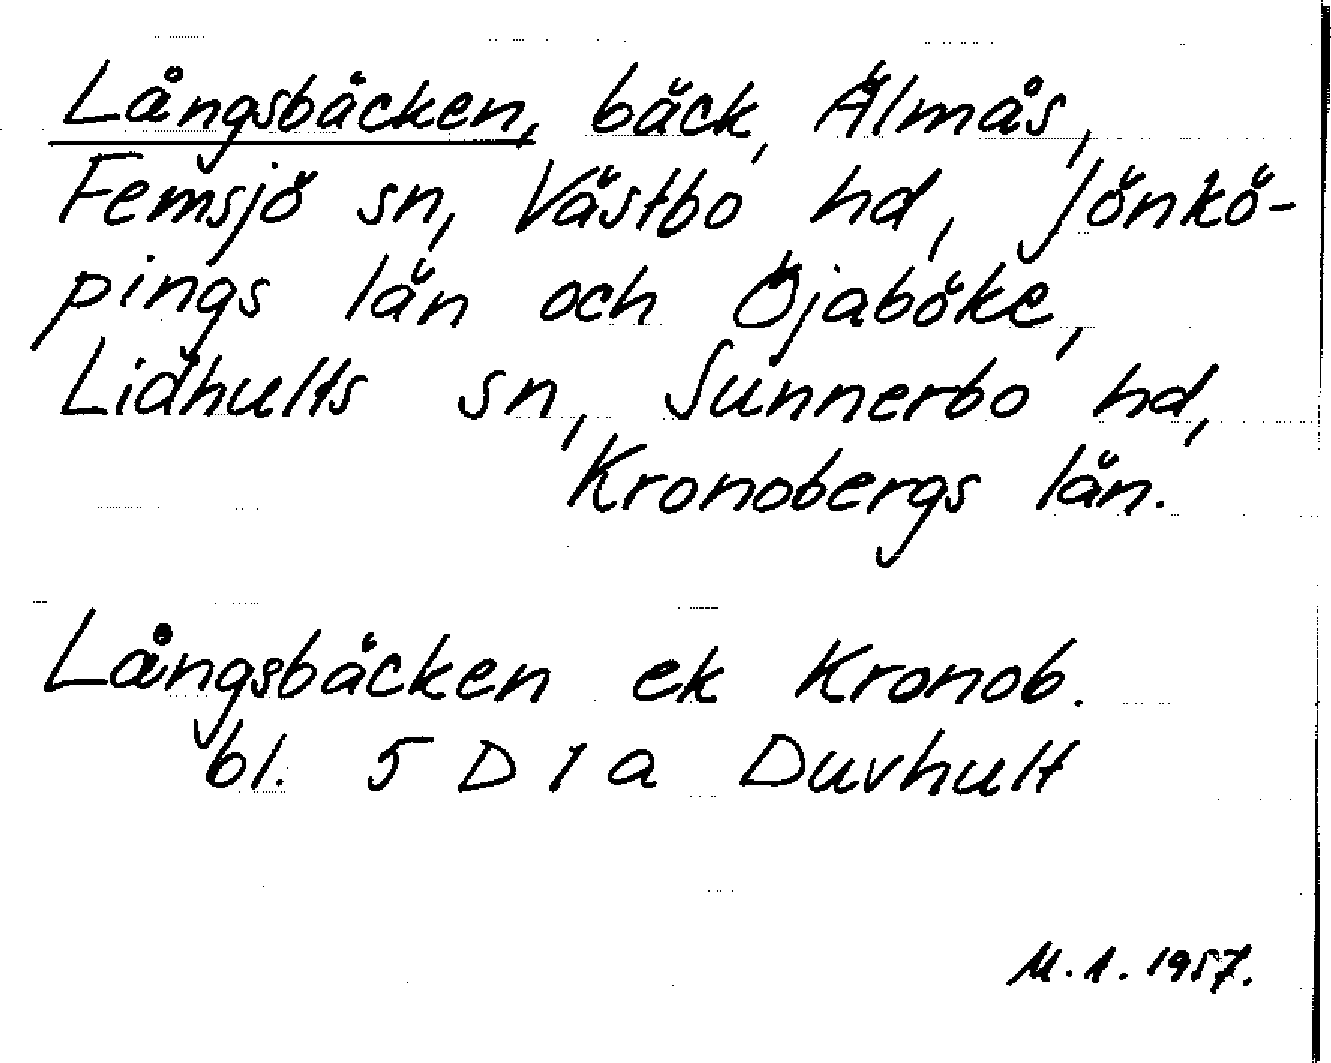 Långsbäcken, bäck, Älmås,
Femsjö sn, Västbo hd, Jönkö-
pings län och Öjaböke,
Lidhults sn, Sunnerbo hd,
Kronobergs län.
Långsbäcken ek Kronob.
bl. 5 D 1 a Duvhult
M. 1. 1957.